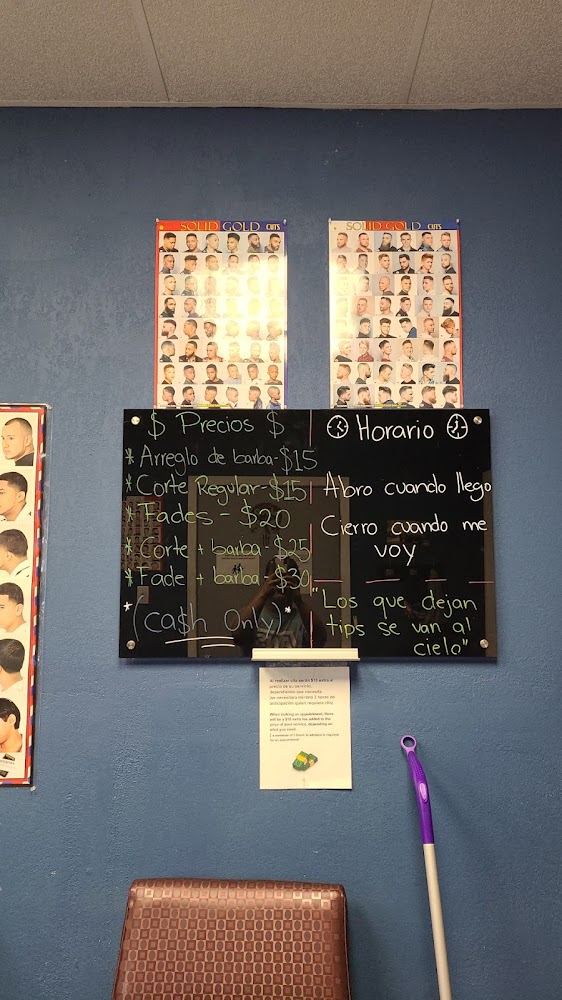 SOLID GOLD CUTS
SOLID GOLD CUTS
$ Precios $
* Arreglo de barba-$15
* Corte Regular-$15
* Fades - $20
* Corte + barba-$25
* Fade + barba-$30
*(ca$h Only)*
Horario
Abro cuando llego
Cierro cuando me
voy
"Los que dejan
tips se van al
cielo"
Al realizar cita serán $10 extra al
precio de su servicio,
dependiendo que necesite.
When making an appointment, there
will be a $10 extra fee added to the
price of your service, depending on
what you need.